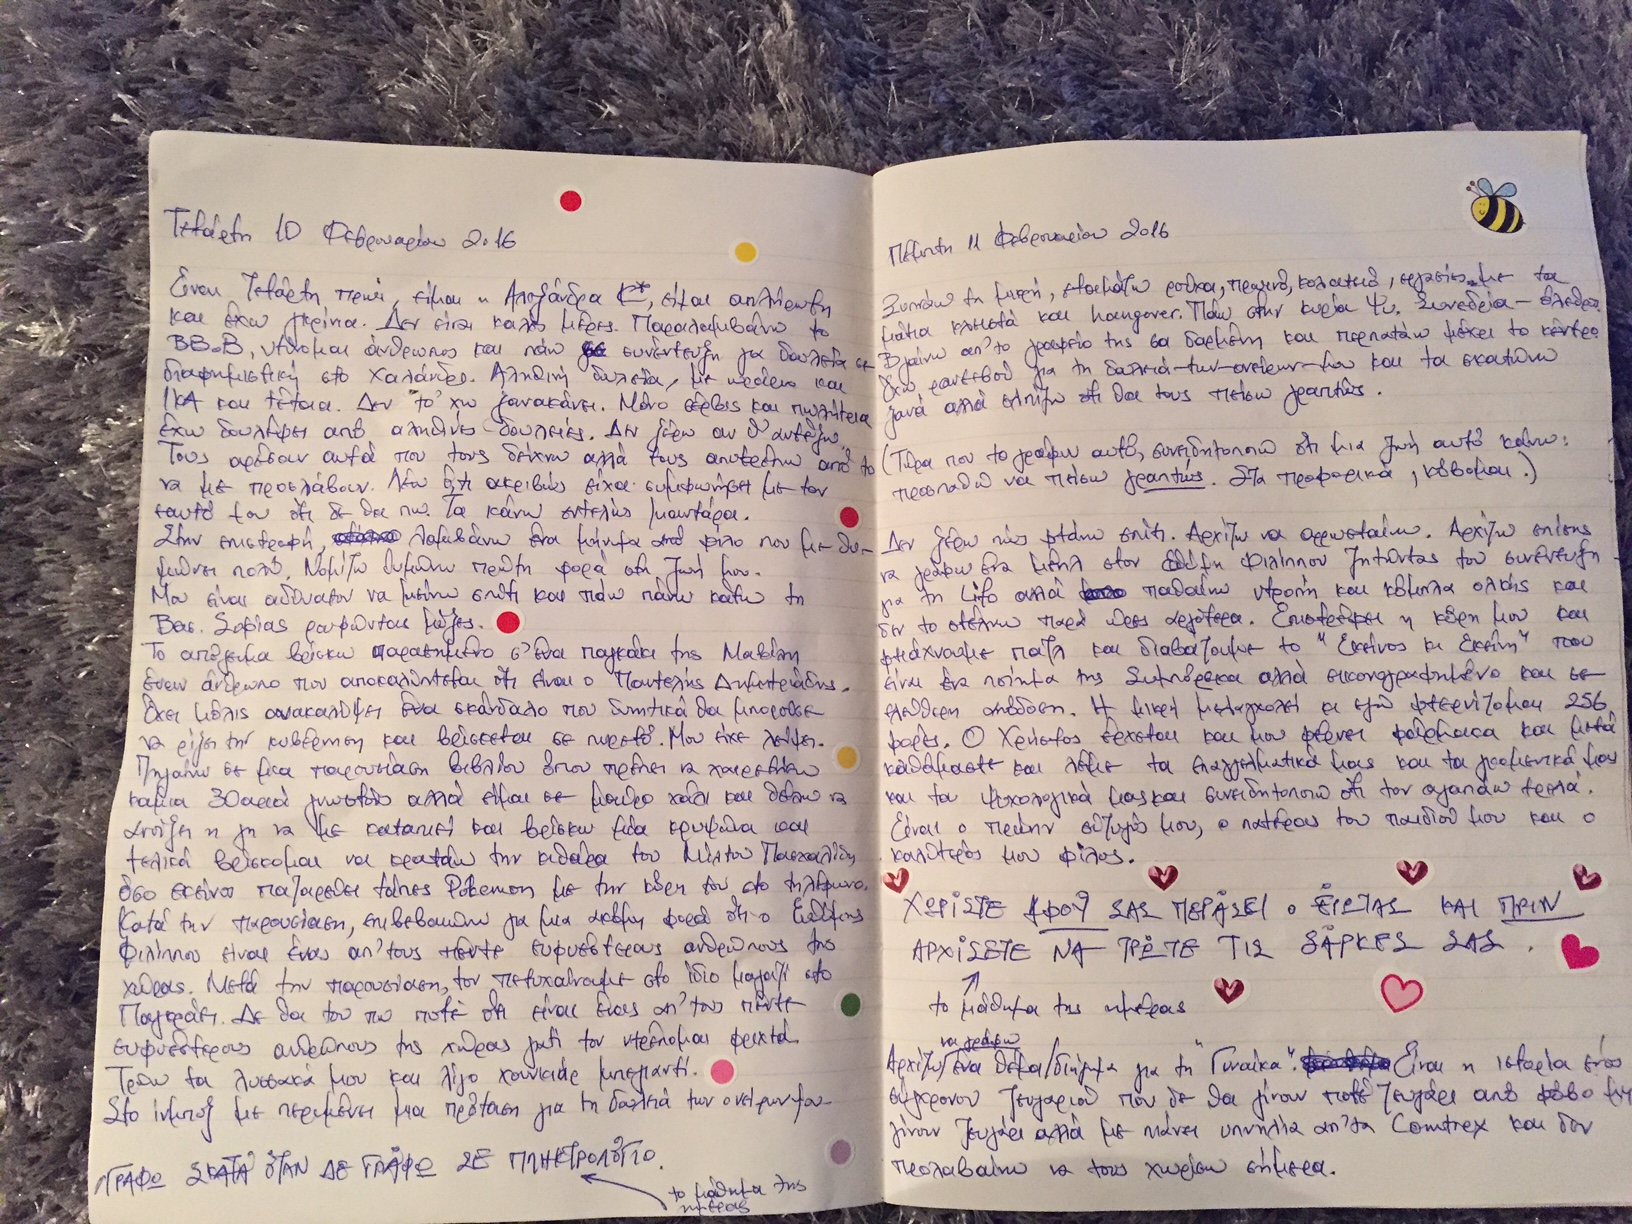 Τετάρτη 10 Φεβρουαρίου 2016
Είναι Τετάρτη πρωί, είμαι η Αλεξάνδρα Κ*, είμαι απλήρωτη
και έχω γκρίνια. Δεν είναι καλές μέρες. Παραλαμβάνω το
ντύνομαι άνθρωπος και πάω συνέντευξη για δουλειά σε
διαφημιστική στο Χαλάνδρι. Αληθινή δουλειά, με ωράριο και
ΙΚΑ και τέτοια. Δεν το 'χω ξανακάνει. Μόνο σέρβις και πωλήτρια
έχω δουλέψει από αληθινές δουλειές. Δεν ξέρω αν θ' αντέξω.
Τους αρέσαν αυτά που τους δείχνω αλλά τους αποτρέπω από το
να με προσλάβουν. Λέω ό,τι ακριβώς είχα συμφωνήσει με τον
εαυτό μου ότι δε θα πω. Τα κάνω εντελώς μαντάρα.
Στην επιστροφή, λαμβάνω ένα μήνυμα από φίλο που με θυ-
μώνει πολύ. Νομίζω θυμώνω πρώτη φορά στη ζωή μου.
Μου είναι αδύνατον να μείνω σπίτι και πάω πάνω κάτω τη
Βασ. Σοφίας ρουφώντας μύξες.
Το απόγευμα βρίσκω παρατημένο σ' ένα παγκάκι της Μαβίλη
έναν άνθρωπο που αποκαλύπτεται ότι είναι ο Παντελής Δημητριάδης.
Έχει μόλις ανακαλύψει ένα σκάνδαλο που δυνητικά θα μπορούσε
να ρίξει την κυβέρνηση και βρίσκεται σε πυρετό. Μου είχε λείψει.
Πηγαίνω σε μια παρουσίαση βιβλίου όπου πρέπει να χαιρετήσω
καμιά 30αριά γνωστούς αλλά είμαι σε μαύρο χάλι και θέλω να
ανοίξει η γη να με καταπιεί και βρίσκω μια κρυψώνα και
τελικά βρίσκομαι να κρατάω την κιθάρα του Μίλτου Πασχαλίδη
όσο εκείνος παζαρεύει τάπες Pokemon με την κόρη του στο τηλέφωνο.
Κατά την παρουσίαση, επιβεβαιώνω για μια ακόμη φορά ότι ο Ευθύμης
Φιλίππου είναι ένας απ' τους πέντε ευφυέστερους ανθρώπους της
χώρας. Μετά την παρουσίαση, τον πετυχαίνουμε στο ίδιο μαγαζί στο
Παγκράτι. Δε θα του πω ποτέ ότι είναι ένας απ' τους πέντε
ευφυέστερους ανθρώπους της χώρας γιατί τον ντρέπομαι φριχτά.
Τρώω τα λυσσακά μου και λίγο χουνκιάρ μπεγιαντί.
Στο ίνμποξ με περιμένει μια πρόταση για τη δουλειά των ονείρων μου
ΓΡΑΦΩ ΣΚΑΤΑ ΟΤΑΝ ΔΕ ΓΡΑΦΩ ΣΕ ΠΛΗΚΤΡΟΛΟΓΙΟ.
το μάθημα της
ημέρας
Πέμπτη 11 Φεβρουαρίου 2016
Ξυπνάω τη μικρή, ετοιμάζω ρούχα, πρωινό, κολατσιό, εργασίες με τα
μάτια κλειστά και hangover. Πάω στην κυρία Ψυ. Συνεδρία
Βγαίνω απ' το γραφείο της σα δαρμένη και περπατάω μέχρι το κέντρο
Έχω ραντεβού για τη δουλειά-των-ονείρων-μου και τα σκατώνω
ξανά αλλά ελπίζω ότι θα τους πείσω γραπτώς.
(Τώρα που το γράφω αυτό, συνειδητοποιώ ότι μια ζωή αυτό κάνω:
προσπαθώ να πείσω γραπτώς. Στα προφορικά, κόβομαι.)
Δεν ξέρω πώς φτάνω σπίτι. Αρχίζω να αρρωσταίνω. Αρχίζω επίσης
να γράφω ένα μέηλ στον Ευθύμη Φιλίππου ζητώντας του συνέντευξη
για τη Lifo αλλά παθαίνω ντροπή και κόμπλα ολκής και
δεν το στέλνω παρά ώρες αργότερα. Επιστρέφει η κόρη μου και
φτιάχνουμε παζλ και διαβάζουμε το "Εκείνος κι Εκείνη" που
είναι ένα ποίημα της Συμπόρσκα αλλά εικονογραφημένο και σε
ελεύθερη απόδοση. Η μικρή μελαγχολεί κι εγώ φτερνίζομαι 256
φορές. Ο Χρήστος έρχεται και μου φέρνει φάρμακα και μετά
καθόμαστε και λέμε τα επαγγελματικά μας και τα γκομενικά μας
και τα ψυχολογικά μας και συνειδητοποιώ ότι τον αγαπάω τρελά.
Είναι ο πρώην σύζυγός μου, ο πατέρας του παιδιού μου και ο
καλύτερός μου φίλος.
ΧΩΡΙΣΤΕ ΑΦΟΥ ΣΑΣ ΠΕΡΑΣΕΙ Ο ΕΡΩΤΑΣ ΚΑΙ ΠΡΙΝ
ΑΡΧΙΣΕΤΕ ΝΑ ΤΡΩΤΕ ΤΙΣ ΣΑΡΚΕΣ ΣΑΣ.
το μάθημα της ημέρας
να γράφω
Αρχίζω/ένα θέμα/διήγημα για τη "Γυναίκα". Είναι η ιστορία ενός
σύγχρονου ζευγαριού που δε θα γίνουν ποτέ ζευγάρι από φόβο μη
γίνουν ζευγάρι αλλά με πιάνει υπνηλία απ' τα Comtrex και δεν
προλαβαίνω να τους χωρίσω σήμερα.